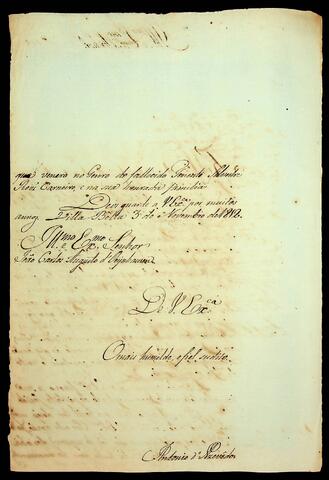 que venero no Genro do fallecido Tenente Alandre
Roiz Carneiro, e na sua honrada familia
Deos guarde a V Exª por muitos
annos Villa Bella 3 de Novembro de 1812.
Illmo e Exmo Senhor
João Carlos Augusto d'Oeynhausen
De V. Exca
O mais humilde, e fiel subdito
Antonio d'Azevedo